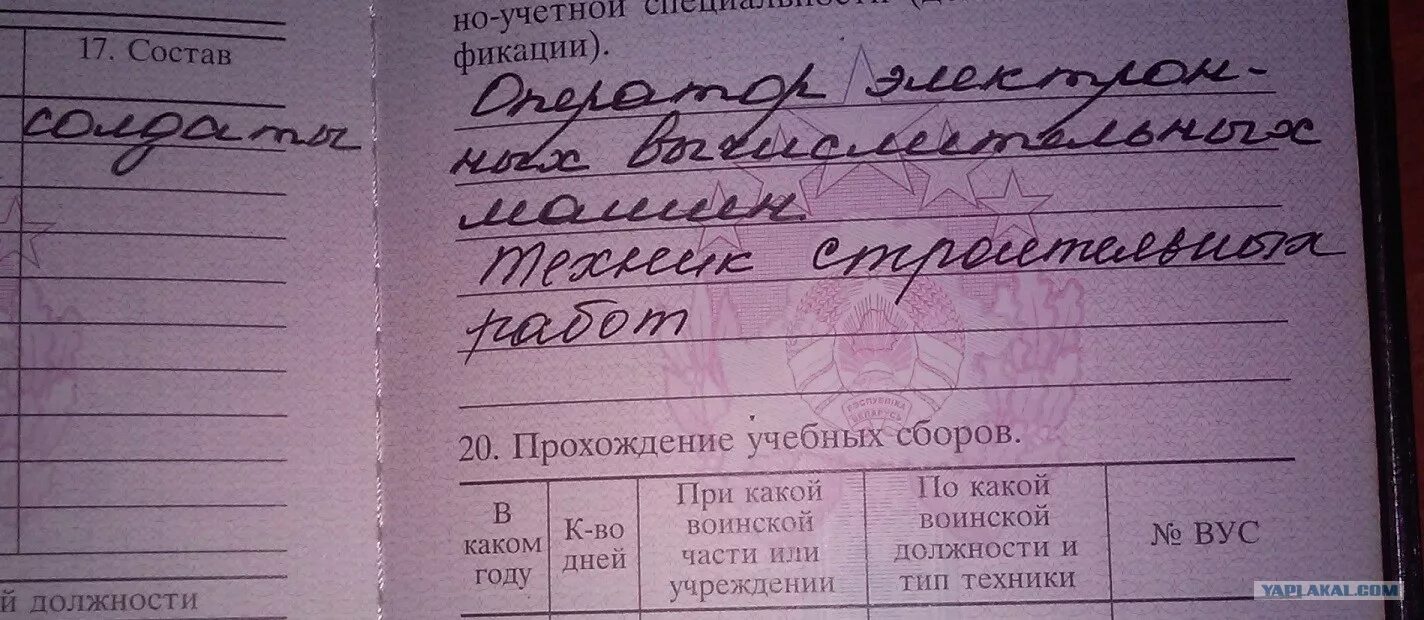 17. Состав
солдаты
й должности
но-учетной специальности
фикации).
Оператор электрон-
ных вычислительных
машин
техник строительных
работ
РЭСПУБЛІКА
БЕЛАРУСЬ
20. Прохождение учебных сборов.
В каком году
К-во дней
При какой воинской части или учреждении
По какой воинской должности и тип техники
№ ВУС
YAPLAKAL.COM